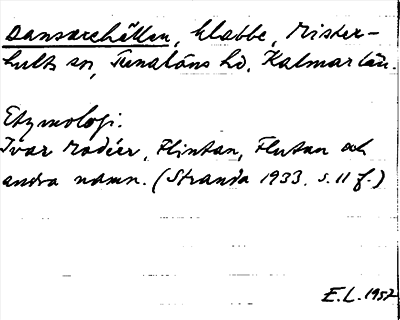 Dansarehällen, klabbe, Mister-
hults sn, Tunaläns hd. Kalmar län.
Etymologi.
Ivar Modéer, Plintan, Flutan och
andra namn. (Stranda 1933. s. 11 f.)
E.L. 1957